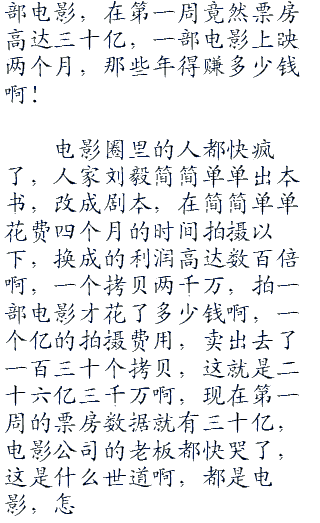 部电影，在第一周竟然票房
高达三十亿，一部电影上映
两个月，那些年得赚多少钱
啊！
电影圈里的人都快疯
了，人家刘毅简简单单出本
书，改成剧本，在简简单单
花费四个月的时间拍摄以
下，换成的利润高达数百倍
啊，一个拷贝两千万，拍一
部电影才花了多少钱啊，一
个亿的拍摄费用，卖出去了
一百三十个拷贝，这就是二
十六亿三千万啊，现在第一
周的票房数据就有三十亿，
电影公司的老板都快哭了，
这是什么世道啊，都是电
影，怎